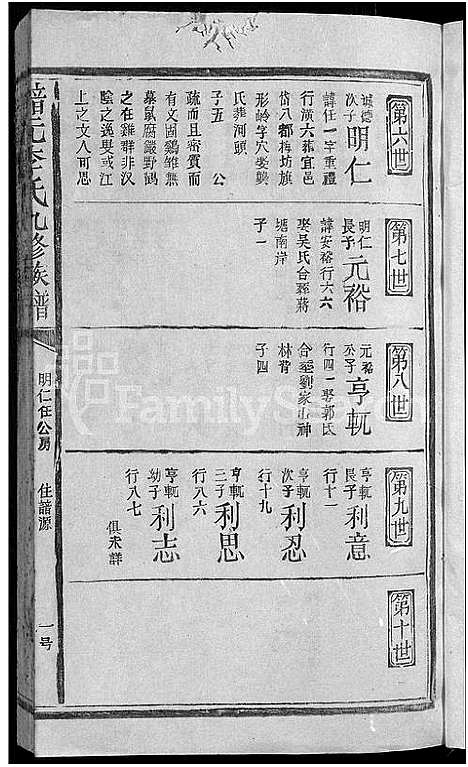 第六世
誠德
次子
明仁
諱任一字重禮
行演六葬宜邑
岱八都梅坊旗
形嶺字穴娶龔
氏葬河頭
子五 公
疏而且密質而
有文固鷄雏無
慕鳳厨嚴野鶴
之在雞群非汉
陰之逸與或江
上之文人可思
第七世
明仁
長子
元裕
諱安裕行六六
娶吳氏合葬蔣
塘南岸
子一
第八世
元裕
公子
亨軏
行四一娶郭氏
合葬劉家山神
林背
子四
第九世
亨軏
長子
利意
行十一
亨軏
次子
利忍
行十九
亨軏
三子
利思
行八六
亨軏
幼子
利志
行八七
俱未詳
第十世
譜元李氏九修族譜
明仁任公房
住譜源
一号
FamilySearch